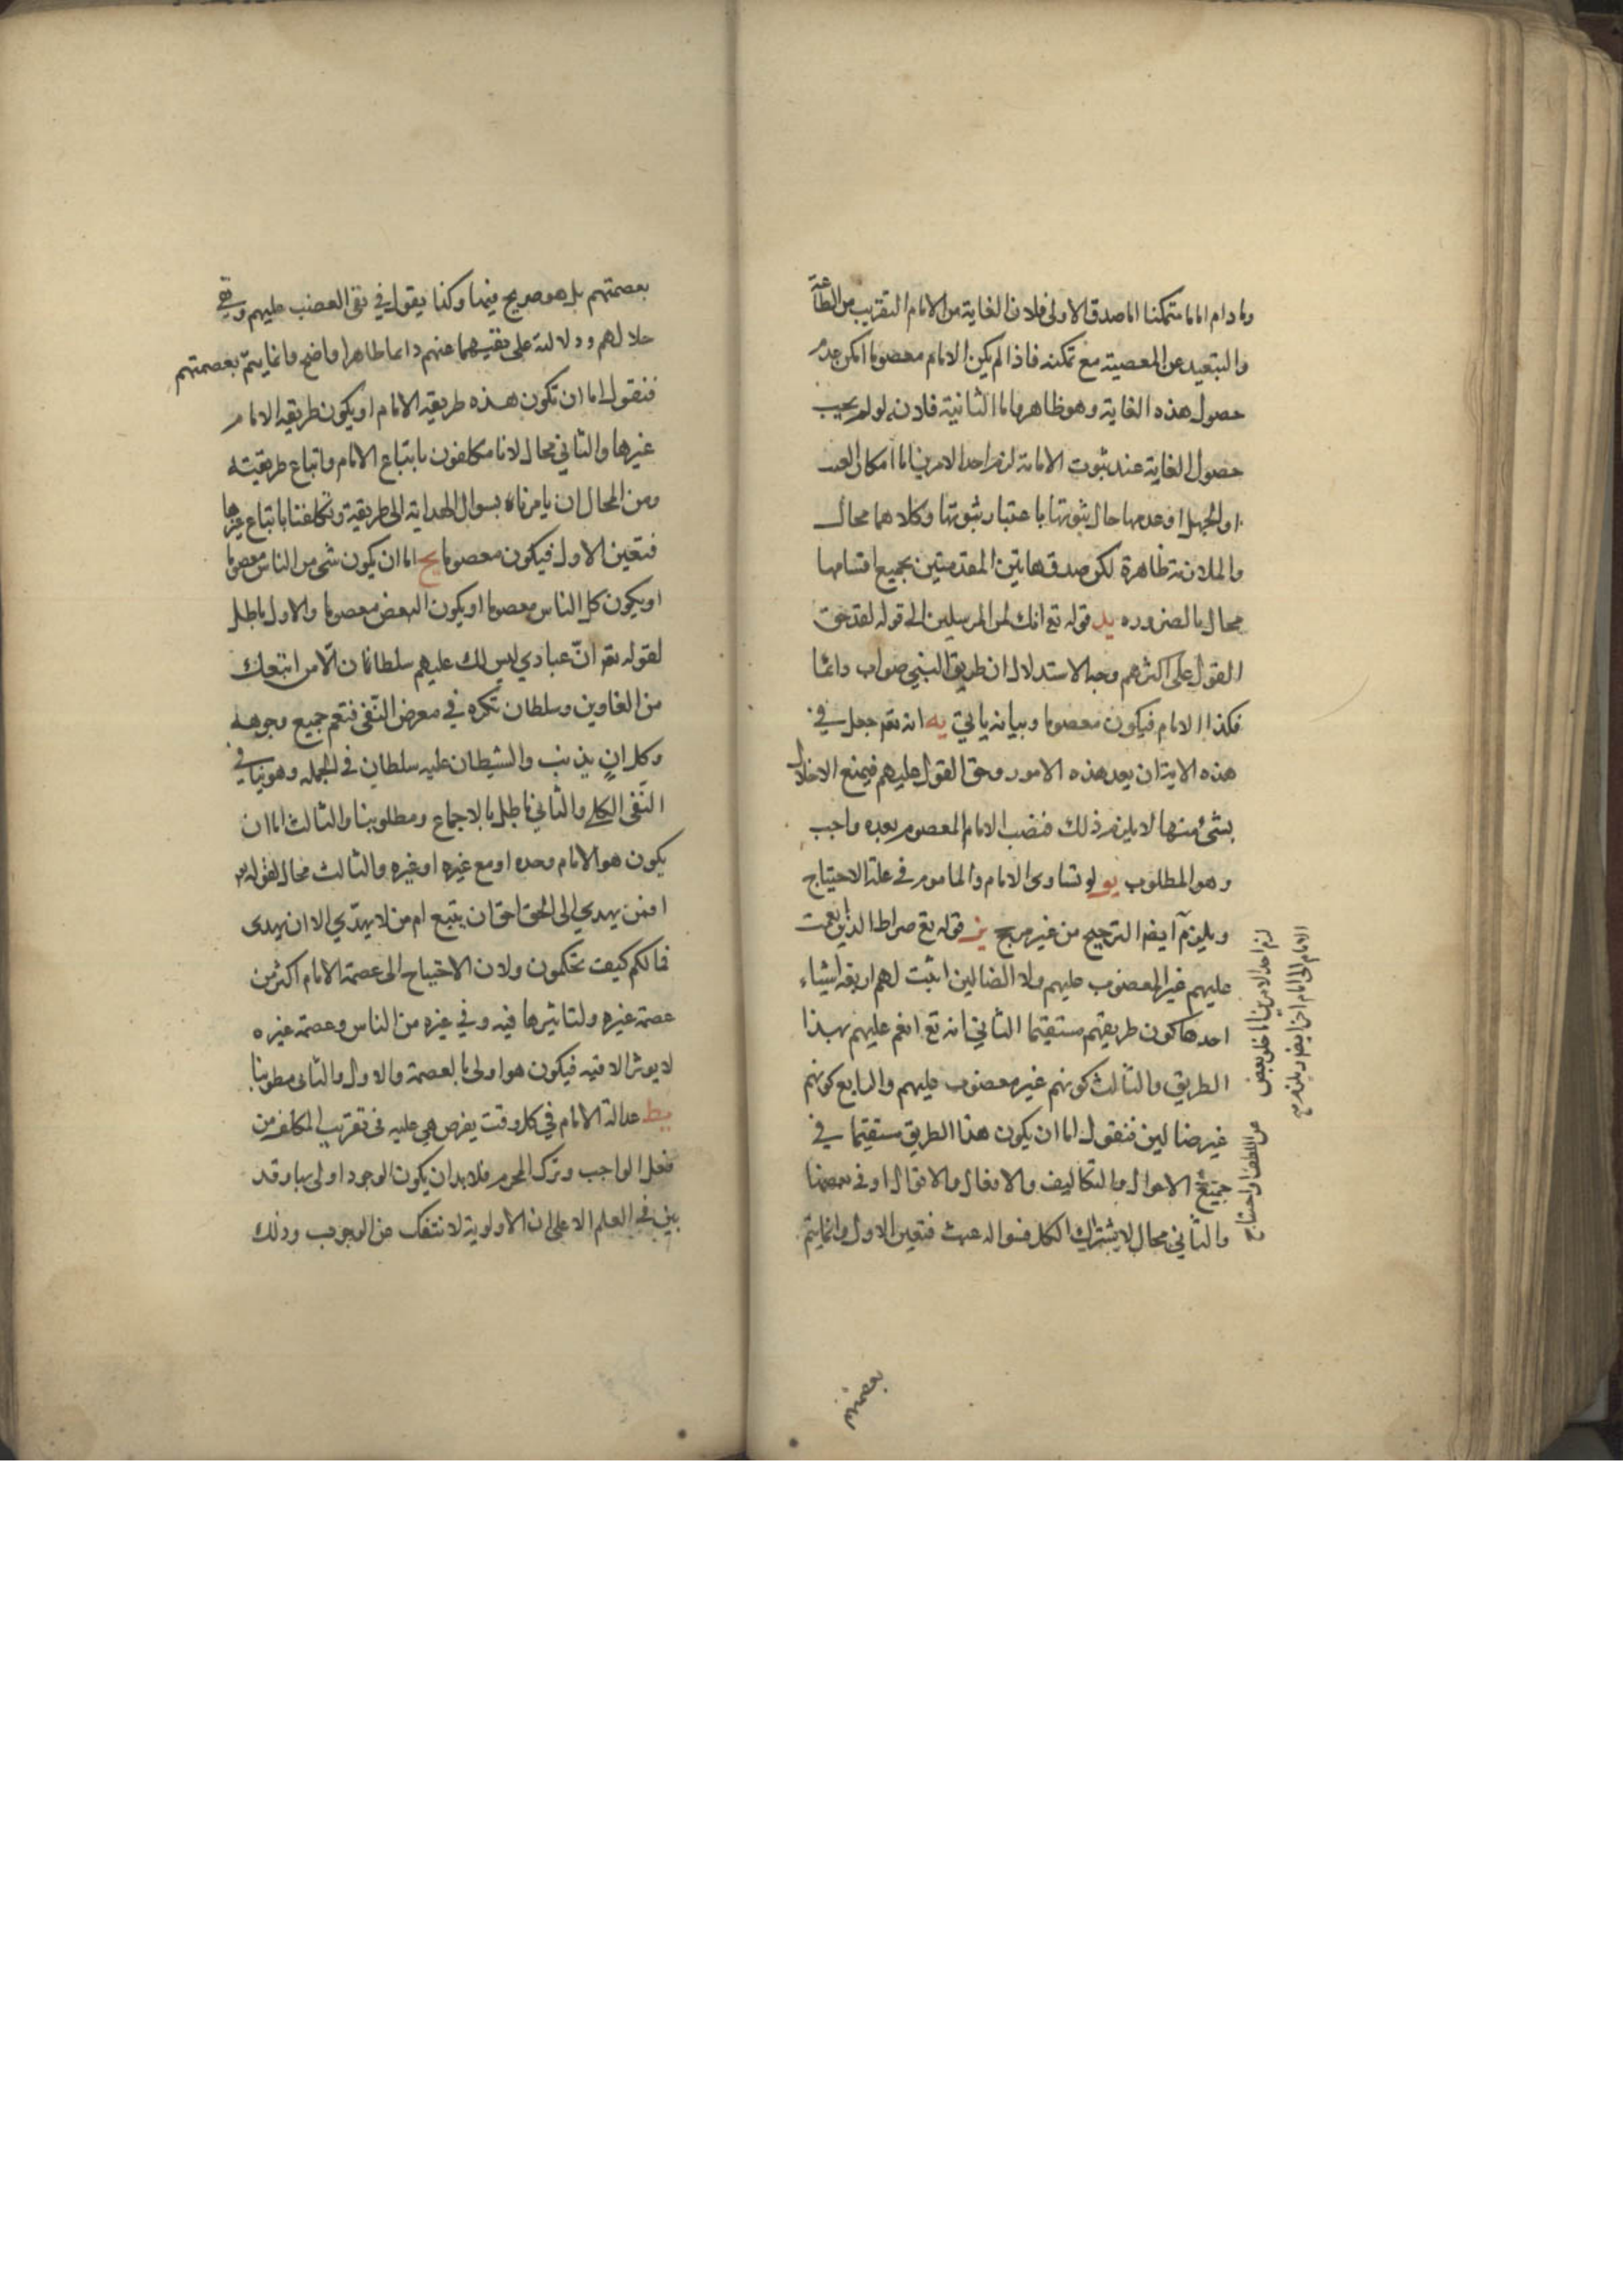 وما دام اماما متمكنا اما صدق الاولى فلان الغاية من الامام التقريب من الطاعة
والتبعيد عن المعصية مع تمكنه فاذا لم يكن الامام معصوما امكن عدم
حصول هذه الغاية وهو ظاهر واما الثانية فلانه لو لم يجب
حصول الغاية عند ثبوت الامامة لزم احد الامرين اما امكان العبث
او الجهل او عدمها حال ثبوتها باعتبار ثبوتها وكلاهما محال
والملازمة ظاهرة لكن صدق هاتين المقدمتين بجميع اقسامها
محال بالضروره يد قوله تع انك لمن المرسلين الى قوله لقد حق
القول على اكثرهم وجه الاستدلال ان طريق النبي صواب دائما
فكذا الامام فيكون معصوما وبيانه ياتي يه انه تعم جعل في
هذه الاية ان بعد هذه الامور وحق القول عليهم فيمنع الاخلال
بشئ منها لا يلزم ذلك فنصب الامام المعصوم بعده واجب
وهو المطلوب يو لو تساوى الامام والماموم في علة الاحتياج
لزم احد الامرين اما خلو بعض
عن اللطف او احتياج
الامام الى امام اخر ايضا ويلزم
ويلزم ايضا الترجيح من غير مرجح يز قوله تع صراط الذين انعمت
عليهم غير المغضوب عليهم ولا الضالين اثبت لهم اربعة اشياء
احدها كون طريقتهم مستقيما الثاني انه تع انعم عليهم بهذا
الطريق والثالث كونهم غير مغضوب عليهم والرابع كونهم
غير ضالين فنقول اما ان يكون هذا الطريق مستقيما في
جميع الاحوال والتكاليف والافعال والاقوال او في بعضها
والثاني محال لاشتراك الكل فسواله عبث فتعين الاول وانما يتم
بعصمتهم
بعصمتهم بل هو صريح فيها وكذا يقول في نفى الغضب عليهم وفى
ضلالهم ودلالته على نفيهما عنهم دائما ظاهرا واضح وانما يتم بعصمتهم
فنقول اما ان تكون هذه طريقه الامام او يكون طريقه الامام
غيرها والثاني محال لانا مكلفون باتباع الامام واتباع طريقيته
ومن المحال ان يامرنا بسوال الهداية الى طريقة وتكلفنا باتباع غيرها
فتعين الاول فيكون معصوما يح اما ان يكون شى من الناس معصوما
او يكون كل الناس معصوما او يكون البعض معصوما والاول باطل
لقوله تعم انّ عبادي ليس لك عليهم سلطانا الّا من اتبعك
من الغاوين وسلطان نكره في معرض النفى فتعم جميع وجوهه
وكل ان يذنب والشيطان عليه سلطان في الجمله وهو ينافي
النفى الكلي والثاني باطل بالاجماع ومطلوبنا والثالث اما ان
يكون هو الامام وحده او مع غيره او غيره والثالث محال لقوله تع
افمن يهدي الى الحق احق ان يتبع ام من لا يهدّي الا ان يهدى
فما لكم كيف تحكمون ولان الاحتياج الى عصمة الامام اكثر من
عصمة غيره ولتاثيرها فيه وفي غيره من الناس وعصمة غيره
لا يوثر الا فيه فيكون هو اولى بالعصمة والاول والثانى مطلوبنا
يط عدالة الامام في كل وقت يفرض هي عليه فى تقريب المكلف من
فعل الواجب وترك المحرم فلا بد ان يكون الوجود اولى بها وقد
بين في العلم الاعلى ان الاولوية لا تنفك عن الوجوب وذلك